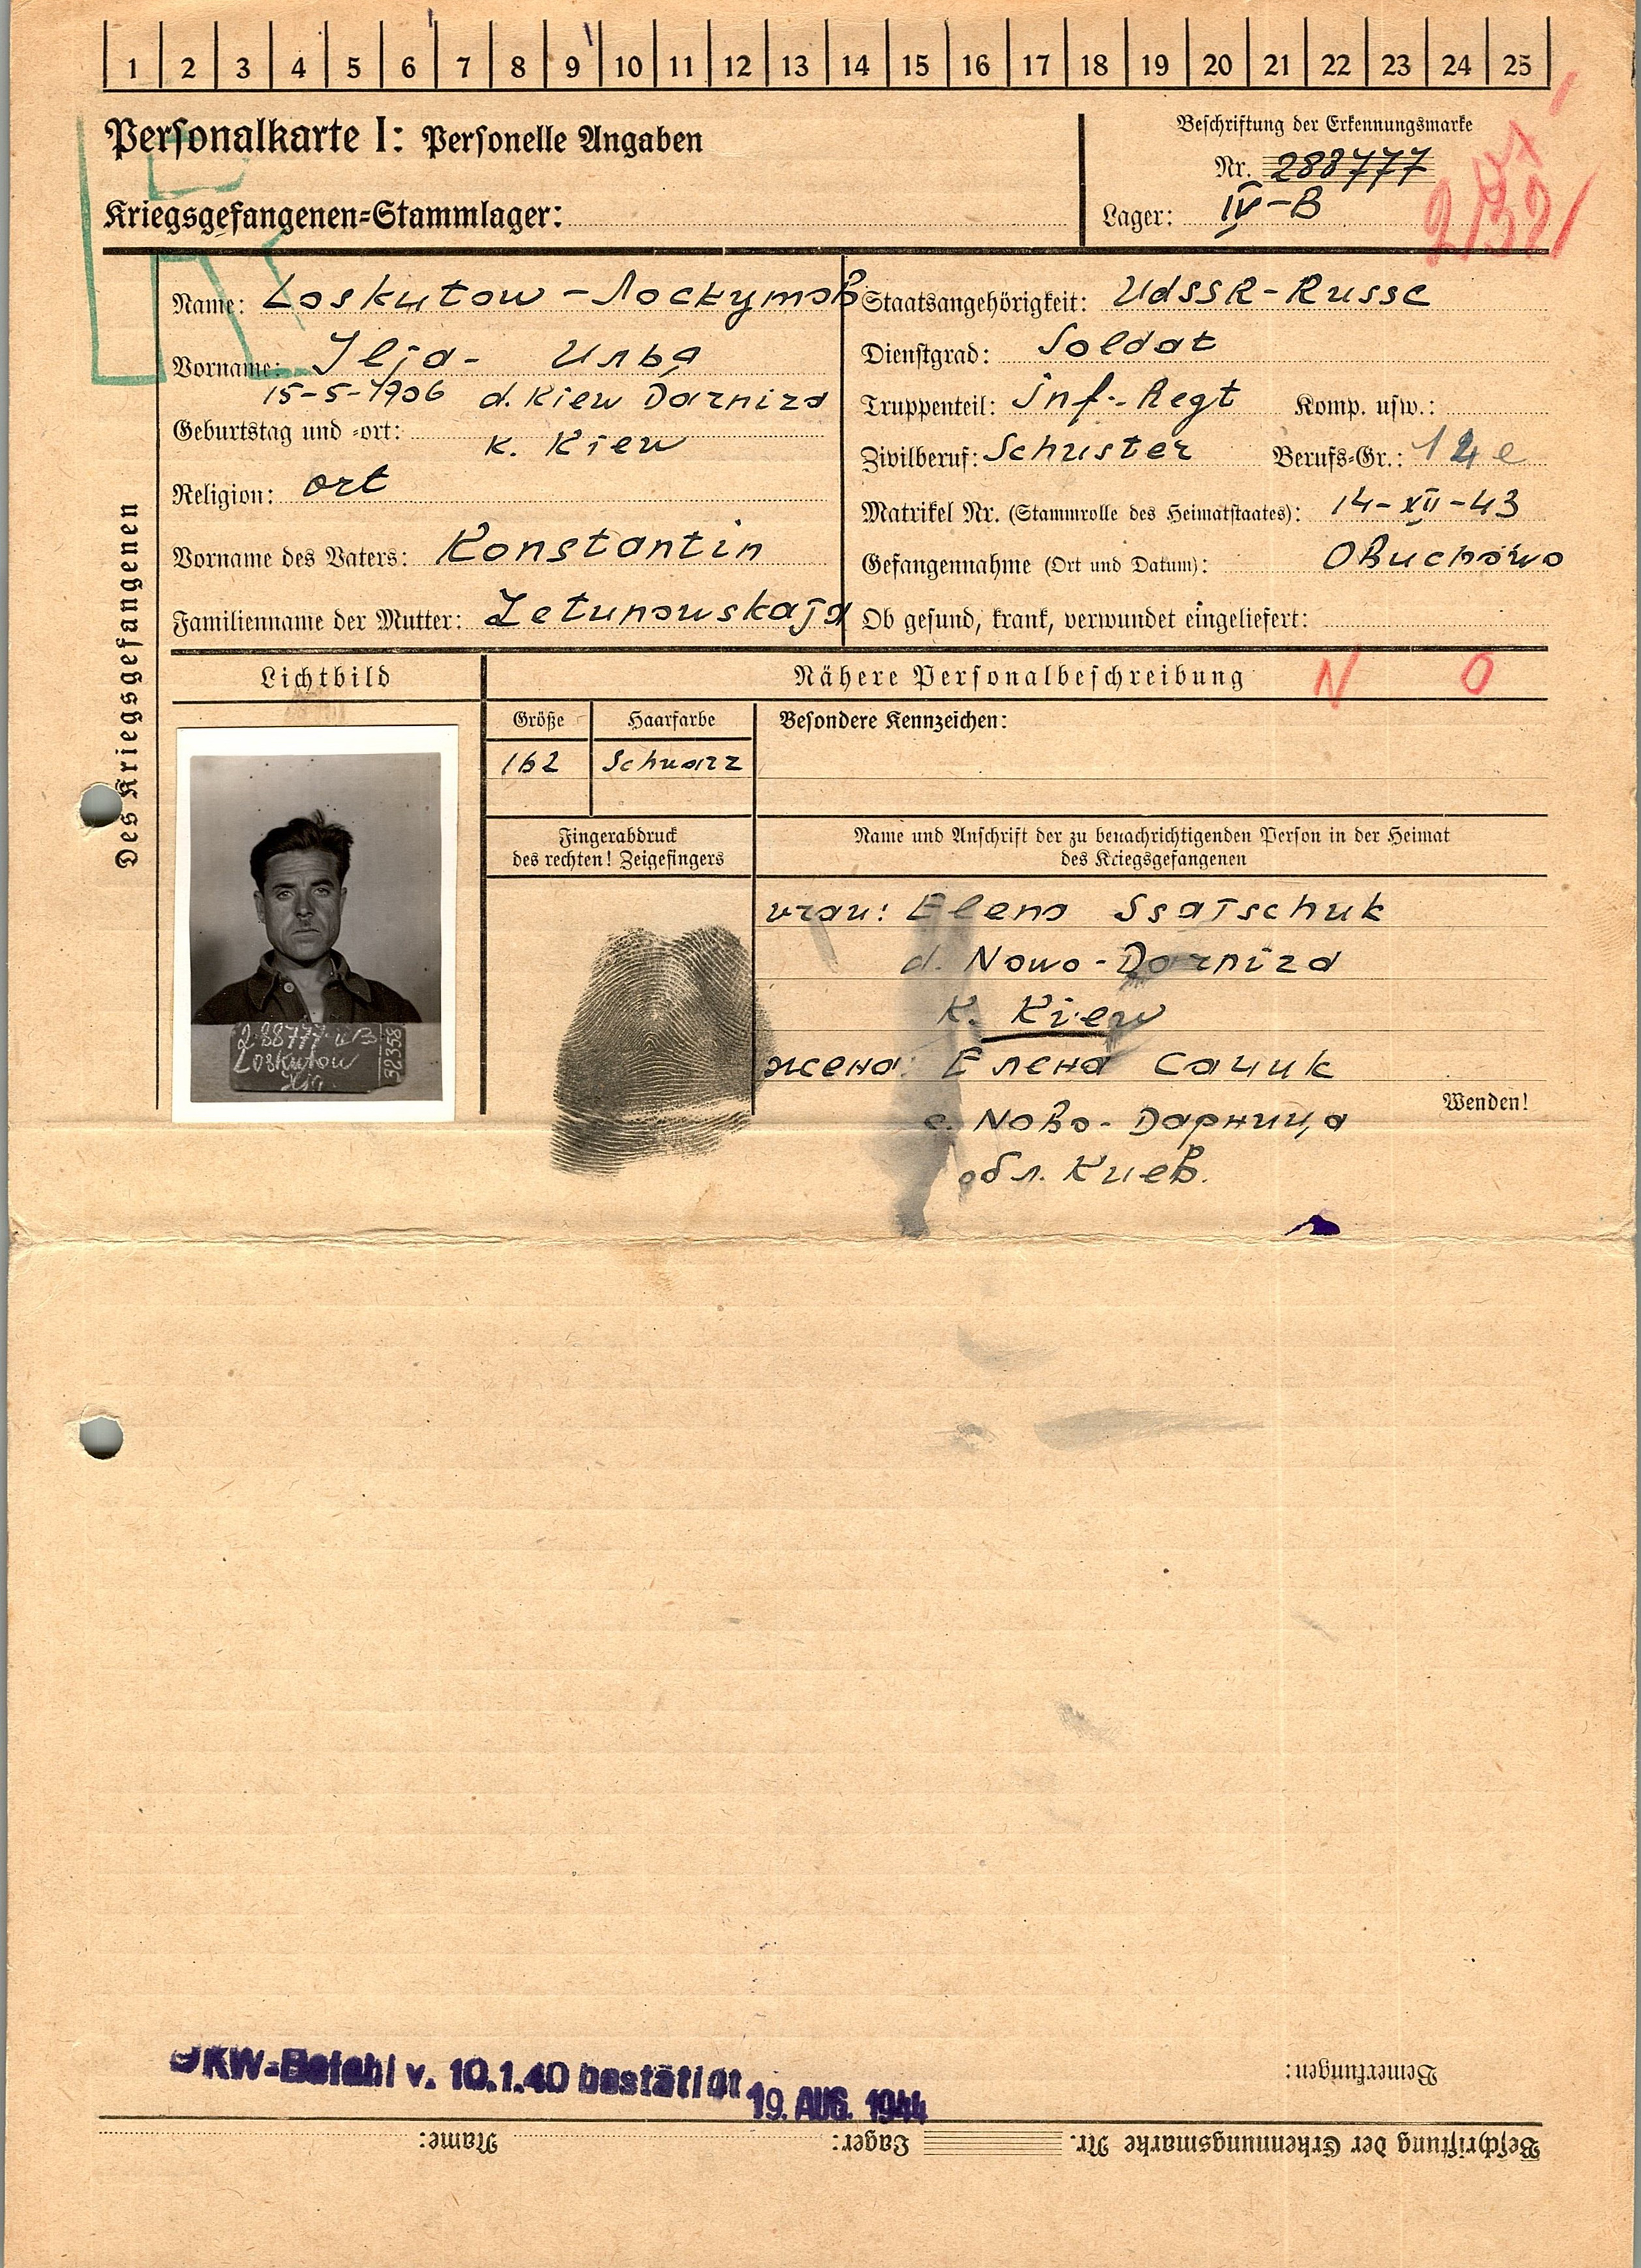 1 2 3 4 5 6 7 8 9 10 11 12 13 14 15 16 17 18 19 20 21 22 23 24 25
Personalkarte I: Personelle Angaben
Kriegsgefangenen-Stammlager:
Beschriftung der Erkennungsmarke
Nr. 288777
Lager: IV-B
Des Kriegsgefangenen
Name: Loskutow - Лоскутов
Vorname: Ilja - Илья
15-5-1906 d. Kiew Darniza
Geburtstag und -ort:
K. Kiew
Religion: ort
Vorname des Vaters: Konstantin
Familienname der Mutter: Letunowskaja
Staatsangehörigkeit: UdSSR - Russe
Dienstgrad: Soldat
Truppenteil: Inf.-Regt Komp. usw.:
Zivilberuf: Schuster Berufs-Gr.: 12 e
Matrikel Nr. (Stammrolle des Heimatstaates): 14-XII-43
Gefangennahme (Ort und Datum): OBuchowo
Ob gesund, krank, verwundet eingeliefert:
Lichtbild
Nähere Personalbeschreibung N O
Größe Haarfarbe Besondere Kennzeichen:
162 Schwarz
Fingerabdruck
des rechten! Zeigefingers
Name und Anschrift der zu benachrichtigenden Person in der Heimat
des Kriegsgefangenen
Elena Ssatschuk
d. Nowo-Darniza
K. Kiew
жена: Елена Сачик
с. Nово-Дарница
обл. Киев.
Wenden!
288777 IV B
Loskutow
32358
OKW-Befehl v. 10.1.40 bestätigt 19. AUG. 1944
Bemerkungen:
Beschriftung der Erkennungsmarke Nr. Lager: Name: